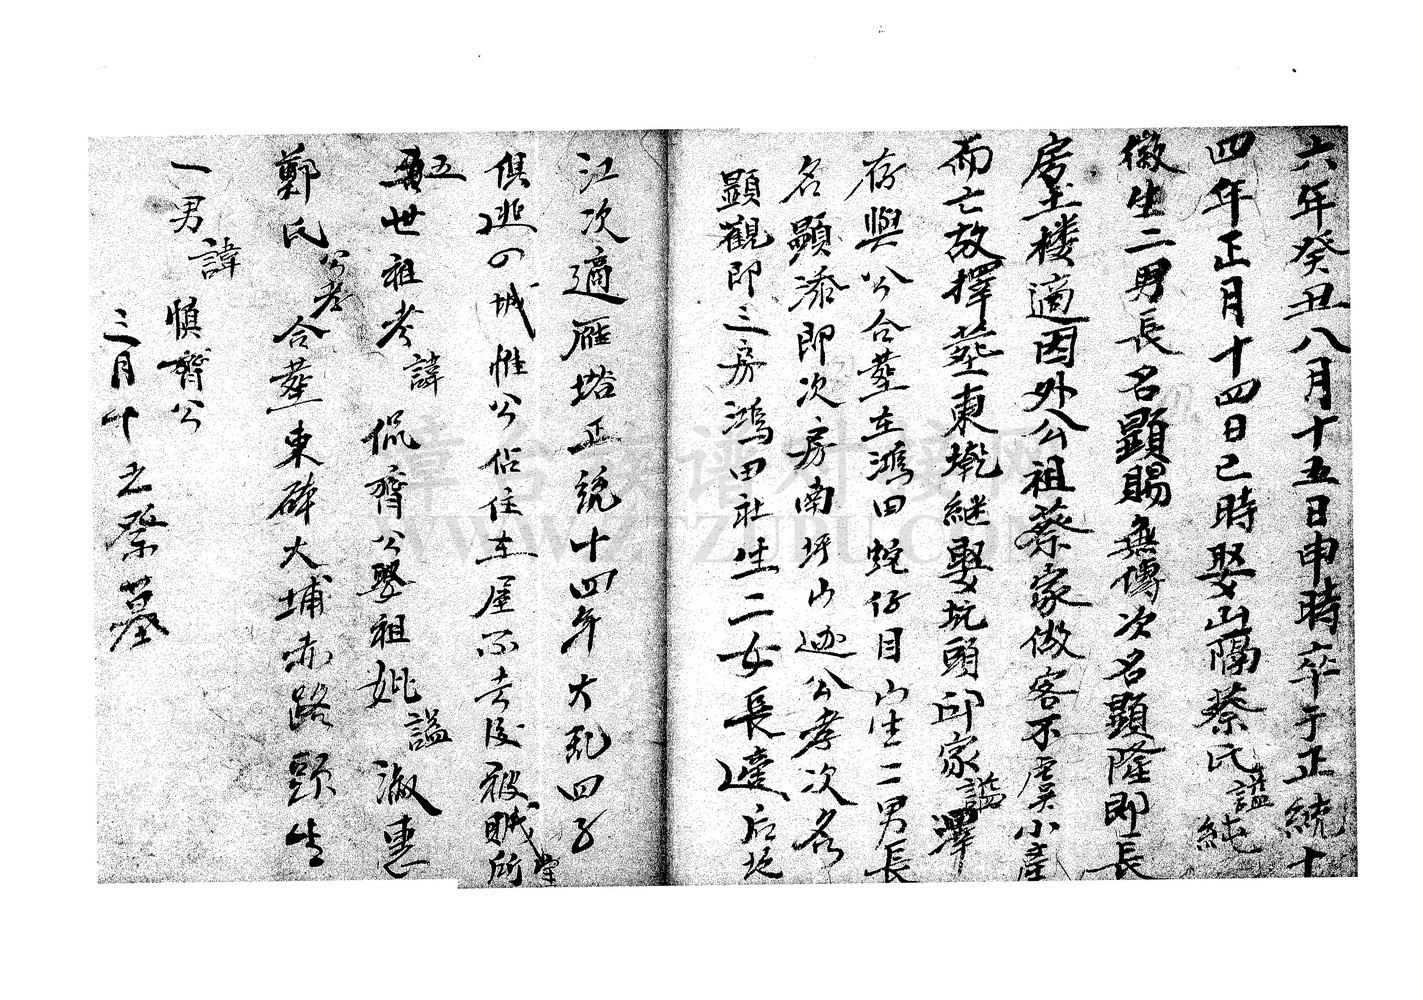 六年癸丑八月十五日申時卒于正統十
四年正月十四日巳時娶山隔蔡氏謚純
徽生二男長名顯賜無傳次名顯隆即長
房土楼適因外公祖蔡家做客不虞小產
而亡故擇葬東坑継娶坑頭邱家謚澤
存與公合葬在鴻田蛇仔目山生二男長
名顯添即次房南坪山遜公孝次名
顯觀即三房鴻田社生二女長適后坑
江次適雁塔正統十四年大乱四子
俱逃四城惟公佔住在屋不去後被賊所
害
五世祖考諱侃齋公娶祖妣謚淑惠
鄭氏公考合葬東碑大埔赤路頭生
一男諱慎齋公
三月十之祭墓
章台族谱对接网
WWW.ZTZUPU.COM